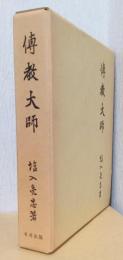 傳教大師
塩入亮忠著
傳教大師
塩入亮忠著